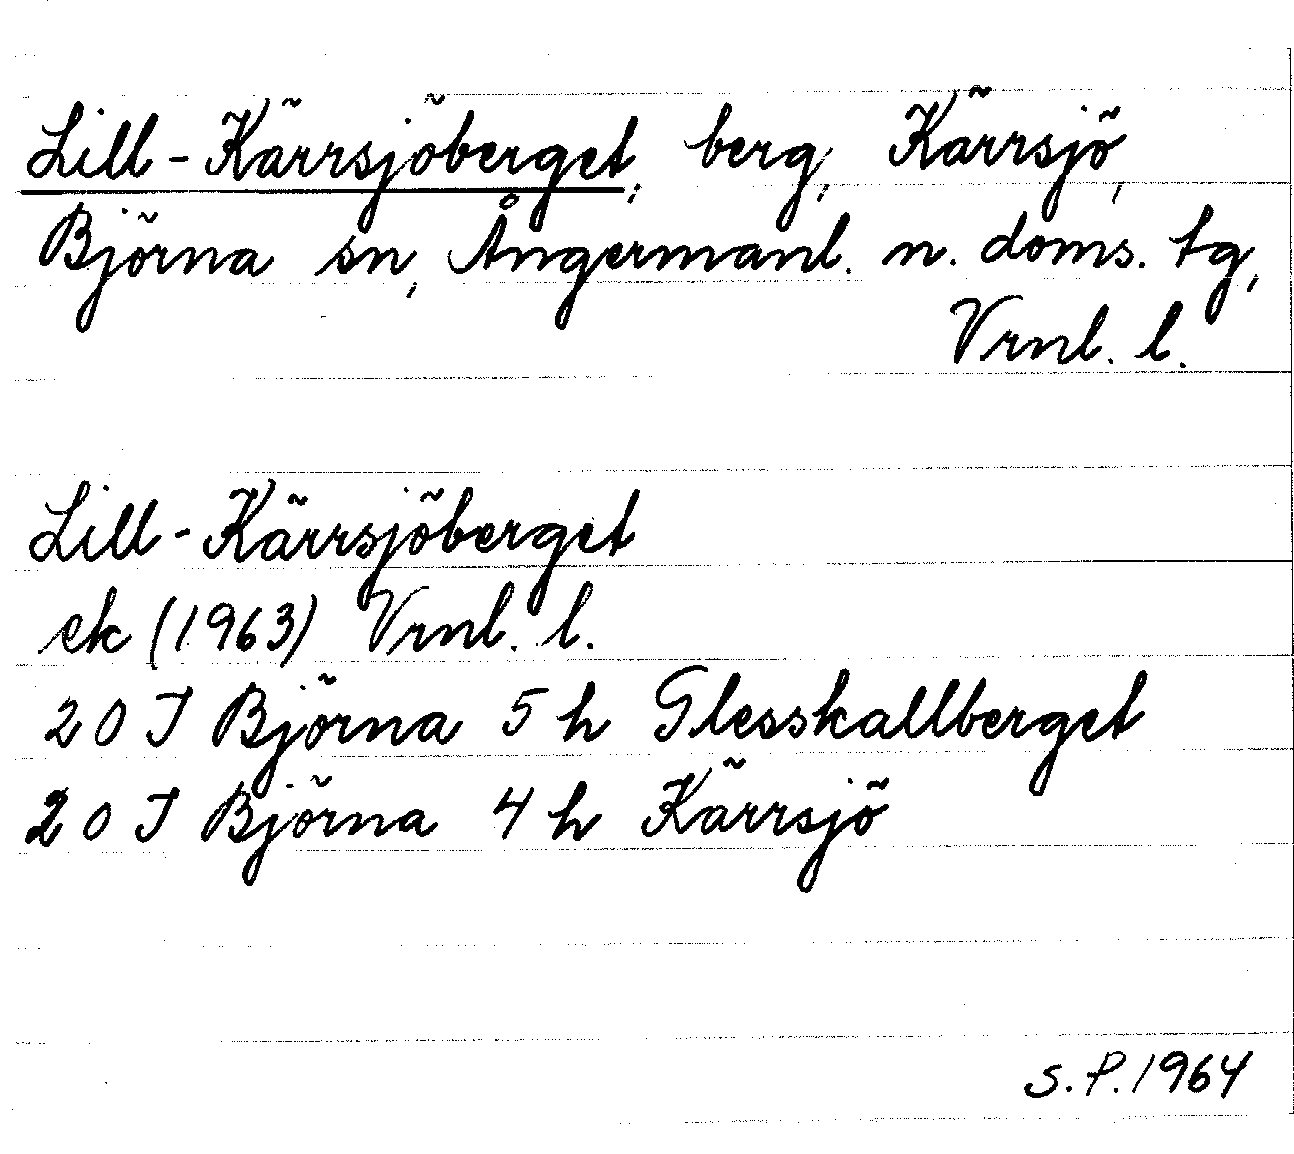 Lill-Kärrsjöberget, berg, Kärrsjö,
Björna sn, Ångermanl. n. doms. tg,
Vrnl. l.
Lill-Kärrsjöberget
ek (1963) Vrnl. l.
20 I Björna 5 h Glesskallberget
20 I Björna 4 h Kärrsjö
S.P. 1964